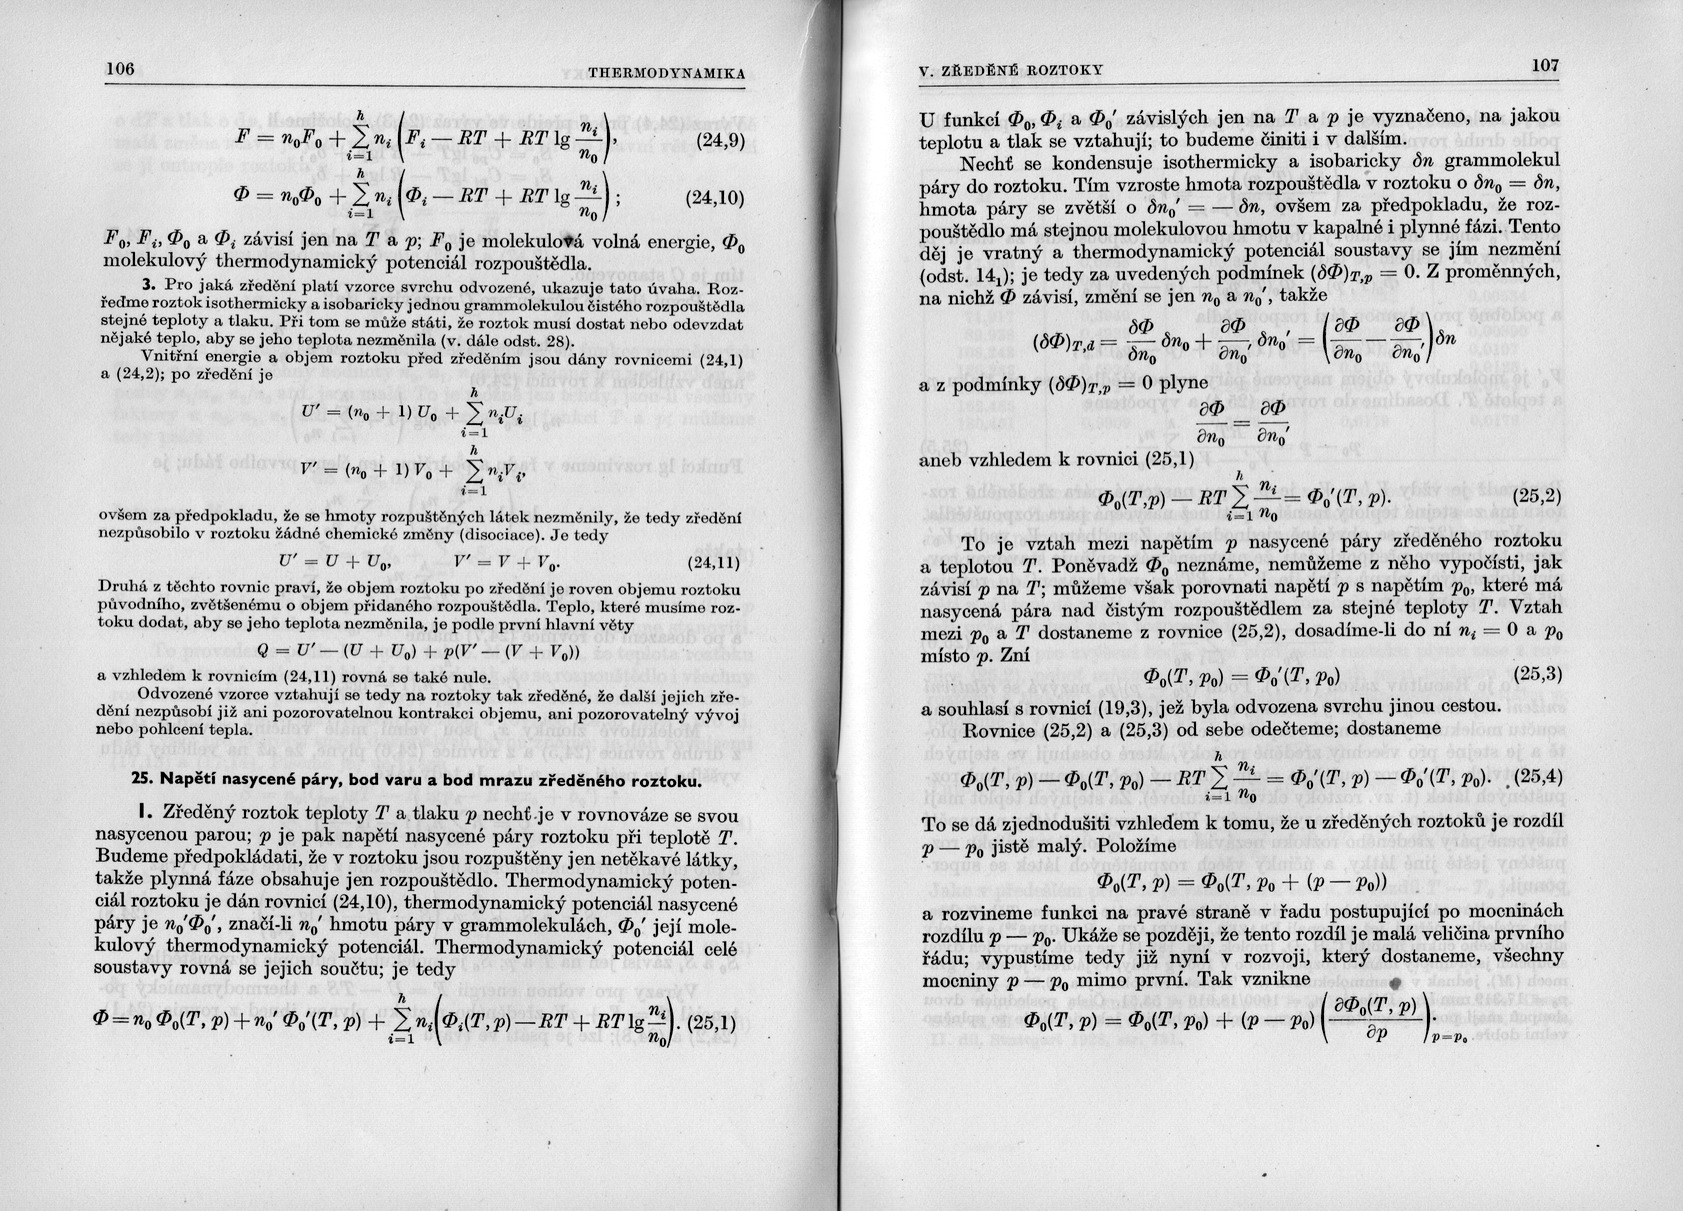 106
THERMODYNAMIKA
F = n₀F₀ + ∑ᵢ₌₁ʰ nᵢ (Fᵢ — RT + RT lg nᵢ/n₀), (24,9)
Φ = n₀Φ₀ + ∑ᵢ₌₁ʰ nᵢ (Φᵢ — RT + RT lg nᵢ/n₀) ; (24,10)
F₀, Fᵢ, Φ₀ a Φᵢ závisí jen na T a p; F₀ je molekulová volná energie, Φ₀
molekulový thermodynamický potenciál rozpouštědla.
3. Pro jaká zředění platí vzorce svrchu odvozené, ukazuje tato úvaha. Roz-
řeďme roztok isothermicky a isobaricky jednou grammolekulou čistého rozpouštědla
stejné teploty a tlaku. Při tom se může státi, že roztok musí dostat nebo odevzdat
nějaké teplo, aby se jeho teplota nezměnila (v. dále odst. 28).
Vnitřní energie a objem roztoku před zředěním jsou dány rovnicemi (24,1)
a (24,2); po zředění je
U′ = (n₀ + 1) U₀ + ∑ᵢ₌₁ʰ nᵢUᵢ
V′ = (n₀ + 1) V₀ + ∑ᵢ₌₁ʰ nᵢVᵢ,
ovšem za předpokladu, že se hmoty rozpuštěných látek nezměnily, že tedy zředění
nezpůsobilo v roztoku žádné chemické změny (disociace). Je tedy
U′ = U + U₀, V′ = V + V₀. (24,11)
Druhá z těchto rovnic praví, že objem roztoku po zředění je roven objemu roztoku
původního, zvětšenému o objem přidaného rozpouštědla. Teplo, které musíme roz-
toku dodat, aby se jeho teplota nezměnila, je podle první hlavní věty
Q = U′ — (U + U₀) + p(V′ — (V + V₀))
a vzhledem k rovnicím (24,11) rovná se také nule.
Odvozené vzorce vztahují se tedy na roztoky tak zředěné, že další jejich zře-
dění nezpůsobí již ani pozorovatelnou kontrakci objemu, ani pozorovatelný vývoj
nebo pohlcení tepla.
25. Napětí nasycené páry, bod varu a bod mrazu zředěného roztoku.
1. Zředěný roztok teploty T a tlaku p nechť je v rovnováze se svou
nasycenou parou; p je pak napětí nasycené páry roztoku při teplotě T.
Budeme předpokládati, že v roztoku jsou rozpuštěny jen netěkavé látky,
takže plynná fáze obsahuje jen rozpouštědlo. Thermodynamický poten-
ciál roztoku je dán rovnicí (24,10), thermodynamický potenciál nasycené
páry je n₀′Φ₀′, značí-li n₀′ hmotu páry v grammolekulách, Φ₀′ její mole-
kulový thermodynamický potenciál. Thermodynamický potenciál celé
soustavy rovná se jejich součtu; je tedy
Φ = n₀ Φ₀(T, p) + n₀′ Φ₀′(T, p) + ∑ᵢ₌₁ʰ nᵢ(Φᵢ(T,p) — RT + RT lg nᵢ/n₀). (25,1)
V. ZŘEDĚNÉ ROZTOKY
107
U funkcí Φ₀, Φᵢ a Φ₀′ závislých jen na T a p je vyznačeno, na jakou
teplotu a tlak se vztahují; to budeme činiti i v dalším.
Nechť se kondensuje isothermicky a isobaricky δn grammolekul
páry do roztoku. Tím vzroste hmota rozpouštědla v roztoku o δn₀ = δn,
hmota páry se zvětší o δn₀′ = — δn, ovšem za předpokladu, že roz-
pouštědlo má stejnou molekulovou hmotu v kapalné i plynné fázi. Tento
děj je vratný a thermodynamický potenciál soustavy se jím nezmění
(odst. 14₁); je tedy za uvedených podmínek (δΦ)T,p = 0. Z proměnných,
na nichž Φ závisí, změní se jen n₀ a n₀′, takže
(δΦ)T,d = δΦ/δn₀ δn₀ + ∂Φ/∂n₀′ δn₀′ = (∂Φ/∂n₀ — ∂Φ/∂n₀′) δn
a z podmínky (δΦ)T,p = 0 plyne
∂Φ/∂n₀ = ∂Φ/∂n₀′
aneb vzhledem k rovnici (25,1)
Φ₀(T,p) — RT ∑ᵢ₌₁ʰ nᵢ/n₀ = Φ₀′(T, p). (25,2)
To je vztah mezi napětím p nasycené páry zředěného roztoku
a teplotou T. Poněvadž Φ₀ neznáme, nemůžeme z něho vypočísti, jak
závisí p na T; můžeme však porovnati napětí p s napětím p₀, které má
nasycená pára nad čistým rozpouštědlem za stejné teploty T. Vztah
mezi p₀ a T dostaneme z rovnice (25,2), dosadíme-li do ní nᵢ = 0 a p₀
místo p. Zní
Φ₀(T, p₀) = Φ₀′(T, p₀) (25,3)
a souhlasí s rovnicí (19,3), jež byla odvozena svrchu jinou cestou.
Rovnice (25,2) a (25,3) od sebe odečteme; dostaneme
Φ₀(T, p) — Φ₀(T, p₀) — RT ∑ᵢ₌₁ʰ nᵢ/n₀ = Φ₀′(T, p) — Φ₀′(T, p₀). (25,4)
To se dá zjednodušiti vzhledem k tomu, že u zředěných roztoků je rozdíl
p — p₀ jistě malý. Položíme
Φ₀(T, p) = Φ₀(T, p₀ + (p — p₀))
a rozvineme funkci na pravé straně v řadu postupující po mocninách
rozdílu p — p₀. Ukáže se později, že tento rozdíl je malá veličina prvního
řádu; vypustíme tedy již nyní v rozvoji, který dostaneme, všechny
mocniny p — p₀ mimo první. Tak vznikne
Φ₀(T, p) = Φ₀(T, p₀) + (p — p₀) (∂Φ₀(T, p)/∂p)p=p₀.